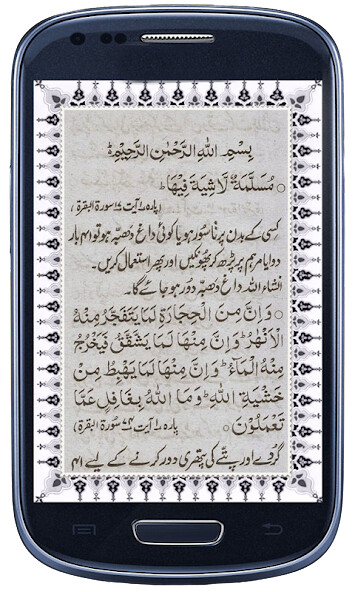 بِسْمِ اللهِ الرَّحْمٰنِ الرَّحِيْمِ
○ مُسَلَّمَةٌ لَّاشِيَةَ فِيْهَا ؕ
(پارہ ۱ آیت ۷۱ سورۃ البقرۃ)
کسی کے بدن پر ناسور ہو یا کوئی داغ دھبّہ ہو تو ۴۱ بار
دوا یا مرہم پر پڑھ کر پھونکیں اور پھر استعمال کریں۔
انشاء اللہ داغ دھبّہ دور ہو جائے گا۔
○ وَاِنَّ مِنَ الْحِجَارَةِ لَمَا يَتَفَجَّرُ مِنْهُ
الْاَنْهٰرُ ؕ وَاِنَّ مِنْهَا لَمَا يَشَّقَّقُ فَيَخْرُجُ
مِنْهُ الْمَآءُ ؕ وَاِنَّ مِنْهَا لَمَا يَهْبِطُ مِنْ
خَشْيَةِ اللهِ ؕ وَمَا اللهُ بِغَافِلٍ عَمَّا
تَعْمَلُوْنَ ○ پارہ ۱ آیت ۷۴ سورۃ البقرۃ)
گردے اور پتّے کی پتھری دور کرنے کے لیے ۴۱